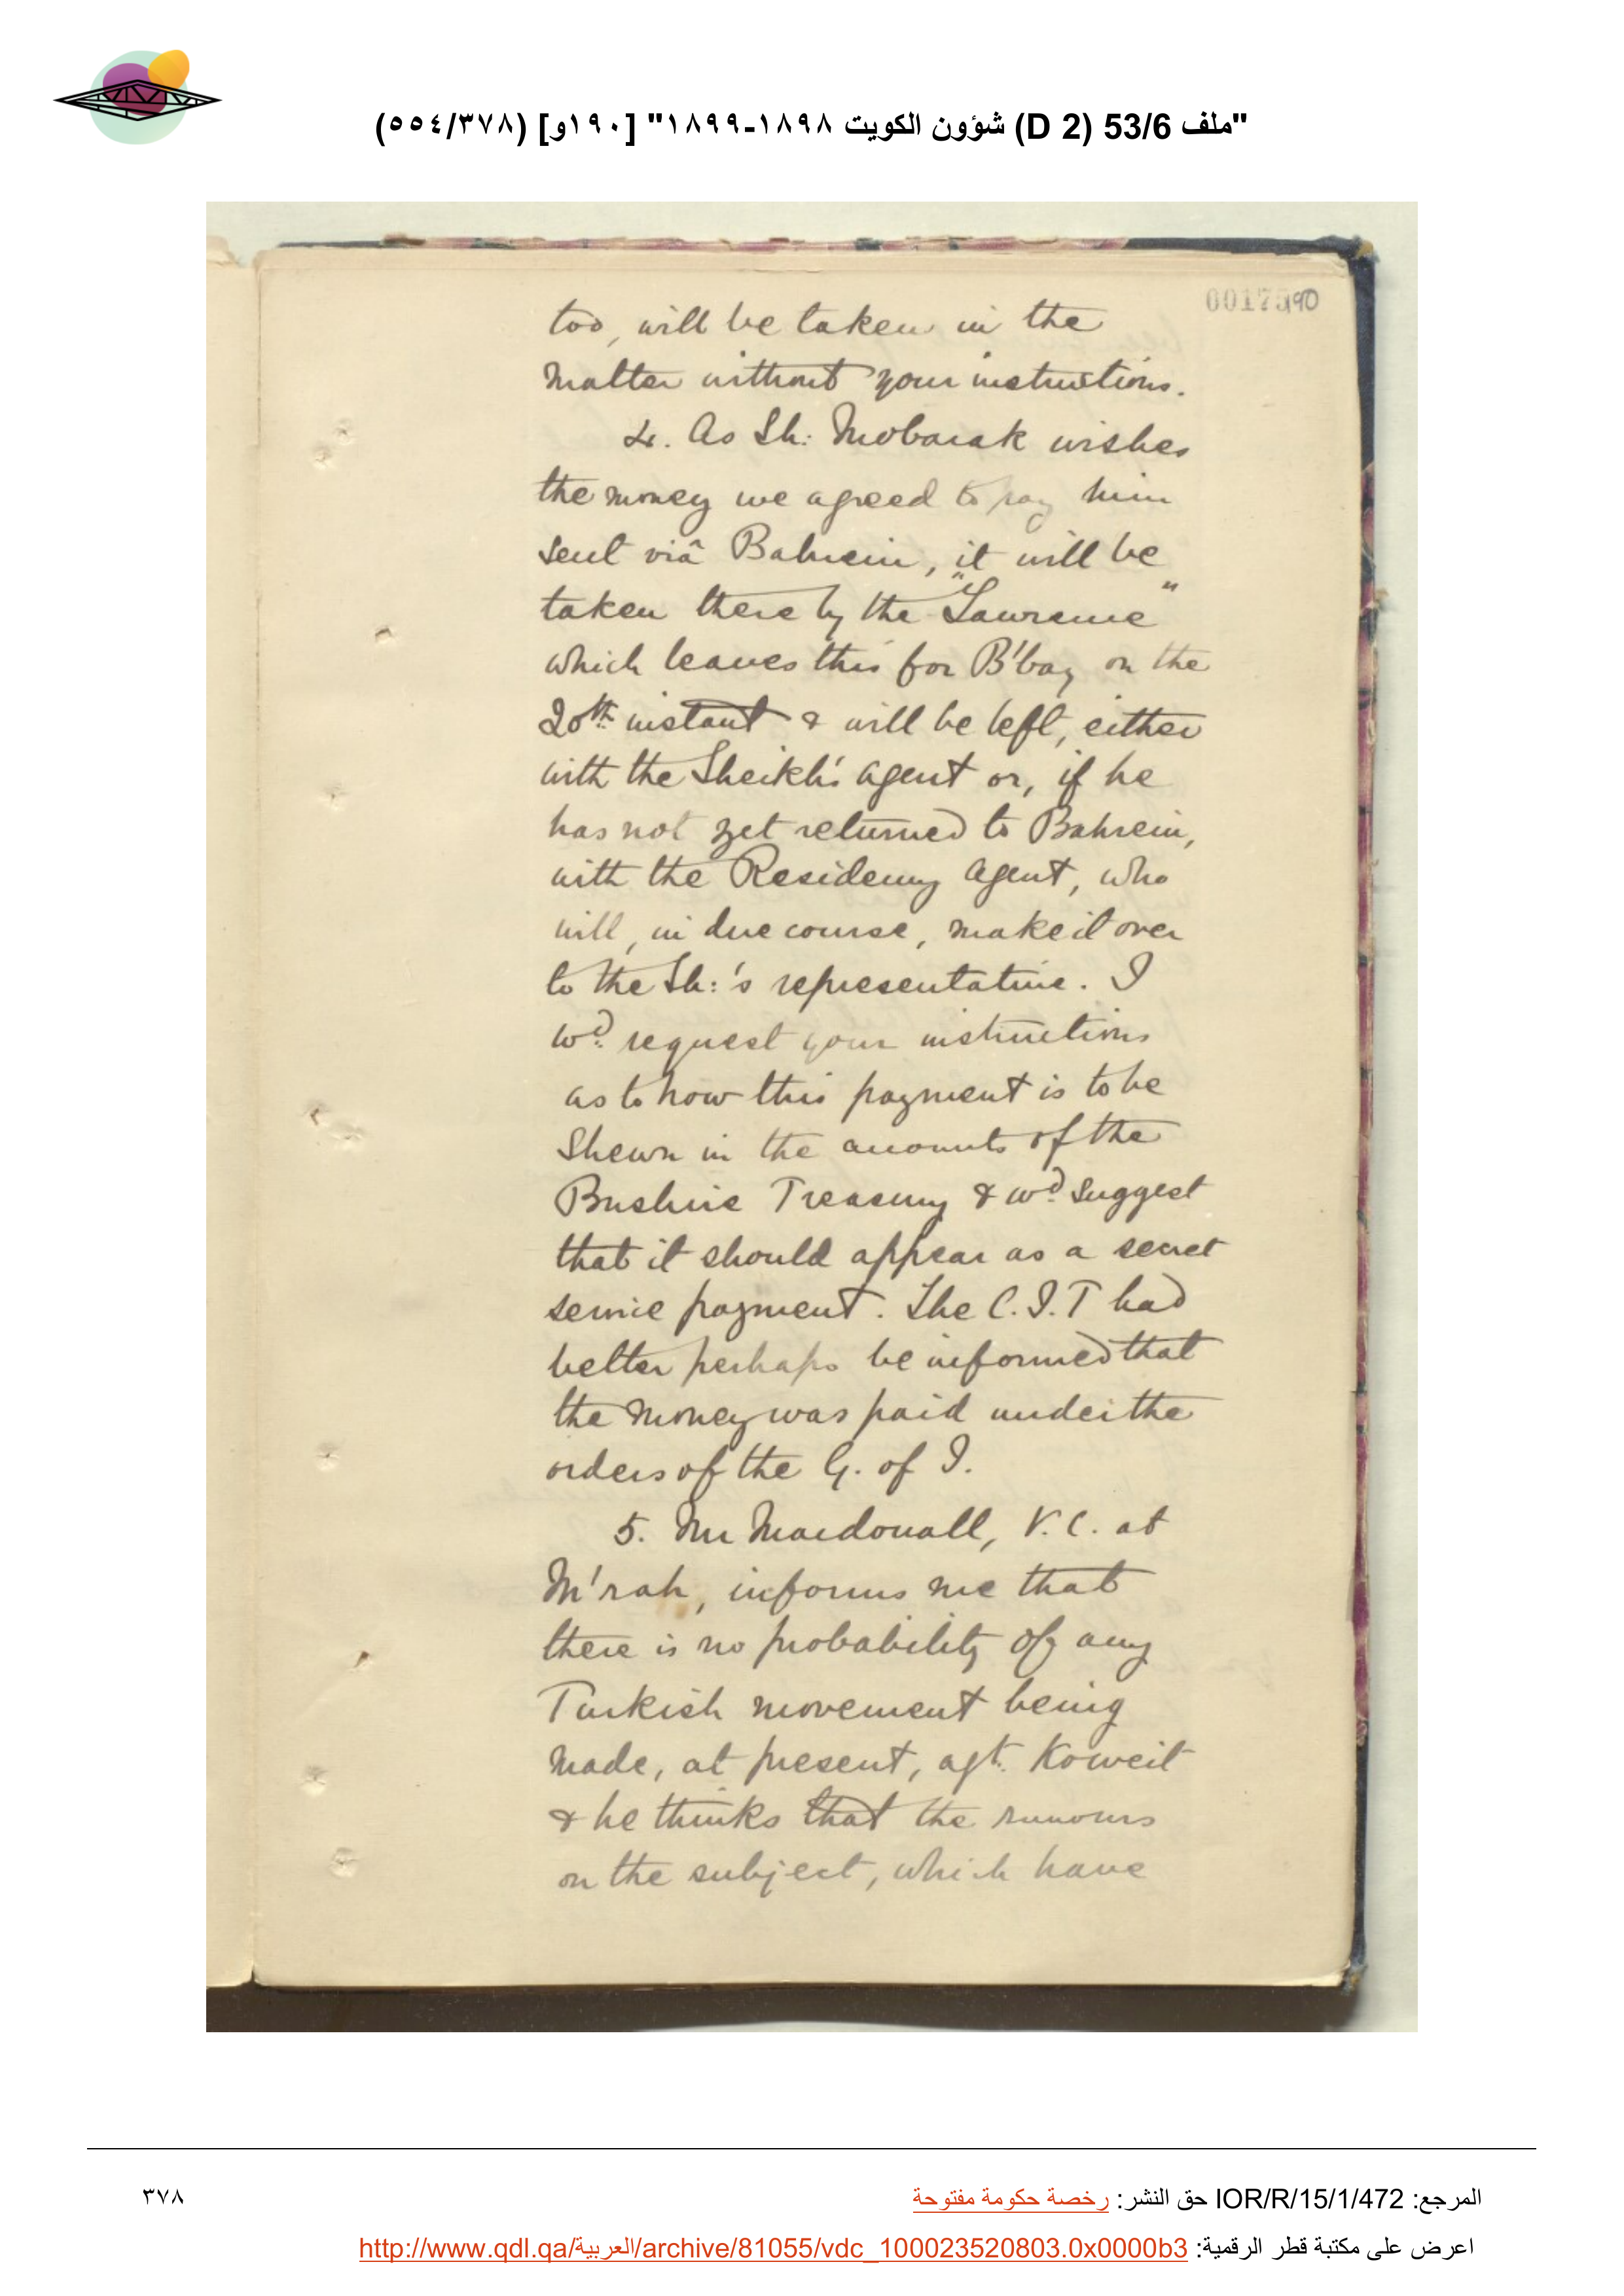 "ملف 53/6 (D 2) شؤون الكويت ١٨٩٨-١٨٩٩" [١٩٠و] (٥٥٤/٣٧٨)
190
too, will be taken in the
matter without your instructions.
4. As Sh: Mobarak wishes
the money we agreed to pay him
sent viâ Bahrein, it will be
taken there by the "Lawrence"
which leaves this for B'bay on the
20th instant & will be left, either
with the Sheikh's agent or, if he
has not yet returned to Bahrein,
with the Residency Agent, who
will, in due course, make it over
to the Sh:'s representative. I
wd. request your instructions
as to how this payment is to be
shewn in the accounts of the
Bushire Treasury & wd. suggest
that it should appear as a secret
service payment. The C.I.T had
better perhaps be informed that
the money was paid under the
orders of the G. of I.
5. Mr Macdouall, V.C. at
M'rah, informs me that
there is no probability of any
Turkish movement being
made, at present, agt. Koweit
& he thinks that the rumours
on the subject, which have
المرجع: IOR/R/15/1/472 حق النشر: رخصة حكومة مفتوحة
٣٧٨
اعرض على مكتبة قطر الرقمية: http://www.qdl.qa/العربية/archive/81055/vdc_100023520803.0x0000b3